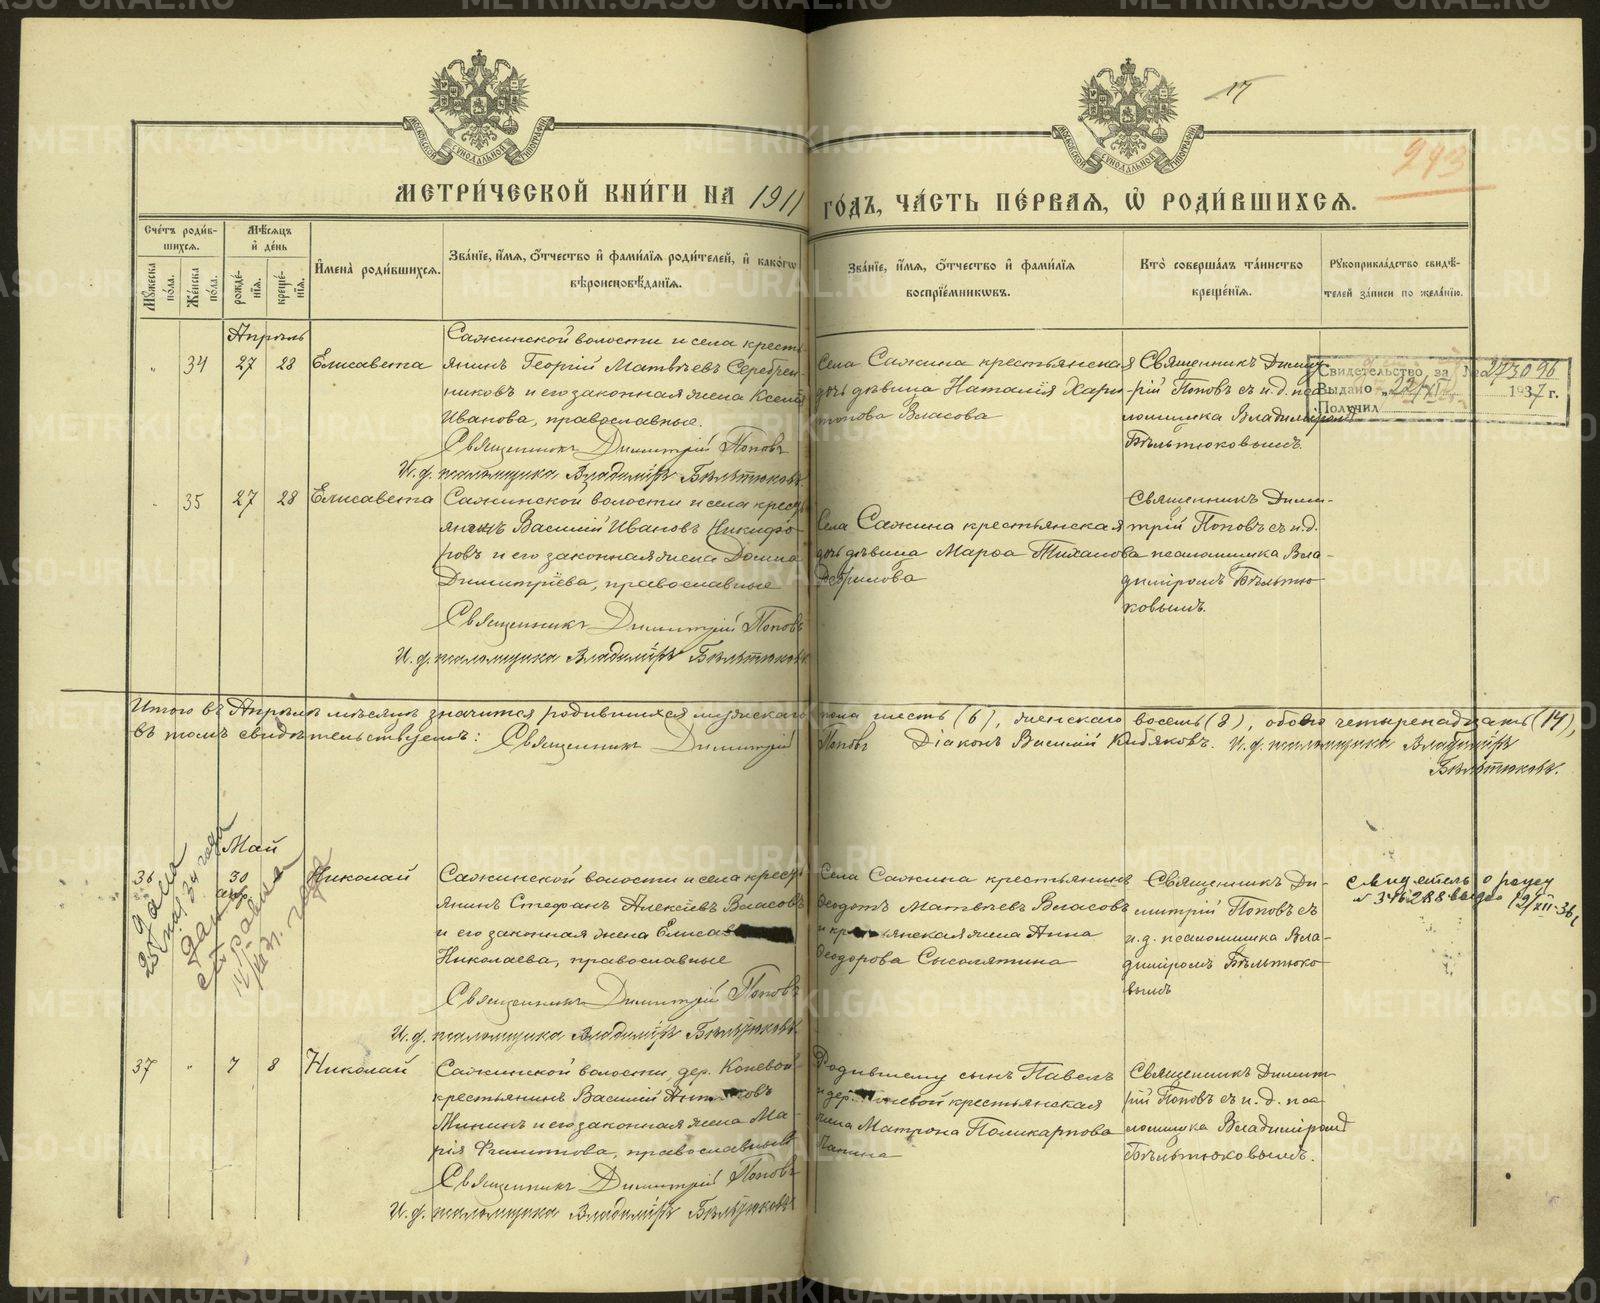 17
293
МЕТРИ́ЧЕСКОЙ КНИ́ГИ НА 1911 ГО́ДЪ, ЧА́СТЬ ПЕ́РВАЯ, Ѡ РОДИ́ВШИХСЯ.
Сче́тъ роди́вшихся.
Мꙋ́жеска по́ла.
Же́нска по́ла.
Мѣ́сяцъ и де́нь
рожде́нїя.
креще́нїя.
Имена̀ роди́вшихся.
Зва́нїе, и́мя, о́тчество и фами́лїя роди́телей, и како́гѡ вѣроисповѣ́данїя.
Зва́нїе, и́мя, о́тчество и фами́лїя воспрїе́мникѡвъ.
Кто̀ соверша́лъ та́инство креще́нїя.
Рꙋкоприкла́дство свидѣ́телей за́писи по жела́нїю.
Апрѣль
34 27 28 Елисавета
Сажинской волости и села кресть-
янинъ Георгій Матвѣевъ Серебрен-
никовъ и его законная жена Ксенія
Иванова, православные.
Священникъ Димитрій Поповъ
И. д. псаломщика Владиміръ Бѣльтюковъ.
Села Сажина крестьянская
дочь дѣвица Наталія Хари-
тонова Власова
Священникъ Димит-
рій Поповъ съ и. д. пса-
ломщика Владиміромъ
Бѣльтюковымъ.
Свидетельство за № 273096
Выдано „22/XII 1937 г.
Получил
35 27 28 Елисавета
Сажинской волости и села кресть-
янинъ Василій Ивановъ Никифо-
ровъ и его законная жена Домна
Димитріева, православные
Священникъ Димитрій Поповъ
И. д. псаломщика Владиміръ Бѣльтюковъ
Села Сажина крестьянская
дочь дѣвица Марѳа Тиханова
Священникъ Дими-
трій Поповъ съ и. д.
псаломщика Вла-
диміромъ Бѣльтю-
ковымъ.
Итого въ Апрѣлѣ мѣсяцѣ значится родившихся мужскаго пола шесть (6), женскаго восемь (8), обоего четыренадцать (14),
въ томъ свидѣтельствуемъ: Священникъ Димитрій Поповъ Діаконъ Василій Кибяковъ. И. д. псаломщика Владиміръ
Бѣльтюковъ.
Май
36 30 Николай
Сажинской волости и села кресть-
янинъ Стефанъ Алексѣевъ Власовъ
и его законная жена Елисав
Николаева, православные
Священникъ Димитрій Поповъ
И. д. псаломщика Владиміръ Бѣльтюковъ.
Села Сажина крестьянинъ
Ѳеодотъ Матвѣевъ Власовъ
и крестьянская жена Анна
Ѳеодорова Сысолятина
Священникъ Ди-
митрій Поповъ съ
и. д. псаломщика Вла-
диміромъ Бѣльтюко-
вымъ
№ 346288 выдано 12/XII-36
37 7 8 Николай
Сажинской волости, дер. Коневой
крестьянинъ Василій
Мининъ и его законная жена Ма-
рія Филиппова, православные
Священникъ Димитрій Поповъ
И. д. псаломщика Владиміръ Бѣльтюковъ
Родившему сынъ Павелъ
и дер. Коневой крестьянская
жена Матрона Поликарпова
Священникъ Димит-
рій Поповъ съ и. д. пса-
ломщика Владиміромъ
Бѣльтюковымъ.
METRIKI.GASO-URAL.RU